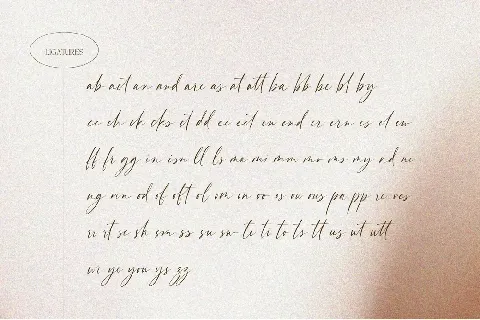 LIGATURES
ab ait an and are as at att ba bb be bl by
cc ch ck cks ct dd ee eit en end er ern es et ew
ff fr gg in isn ll ls ma mi mm mo ms my nd ni
ng oin od of oft ol om on oo os ou ous pa pp re res
ri rt se sh sm ss su sw te ti to ts tt us ut utt
wr ye you ys zz